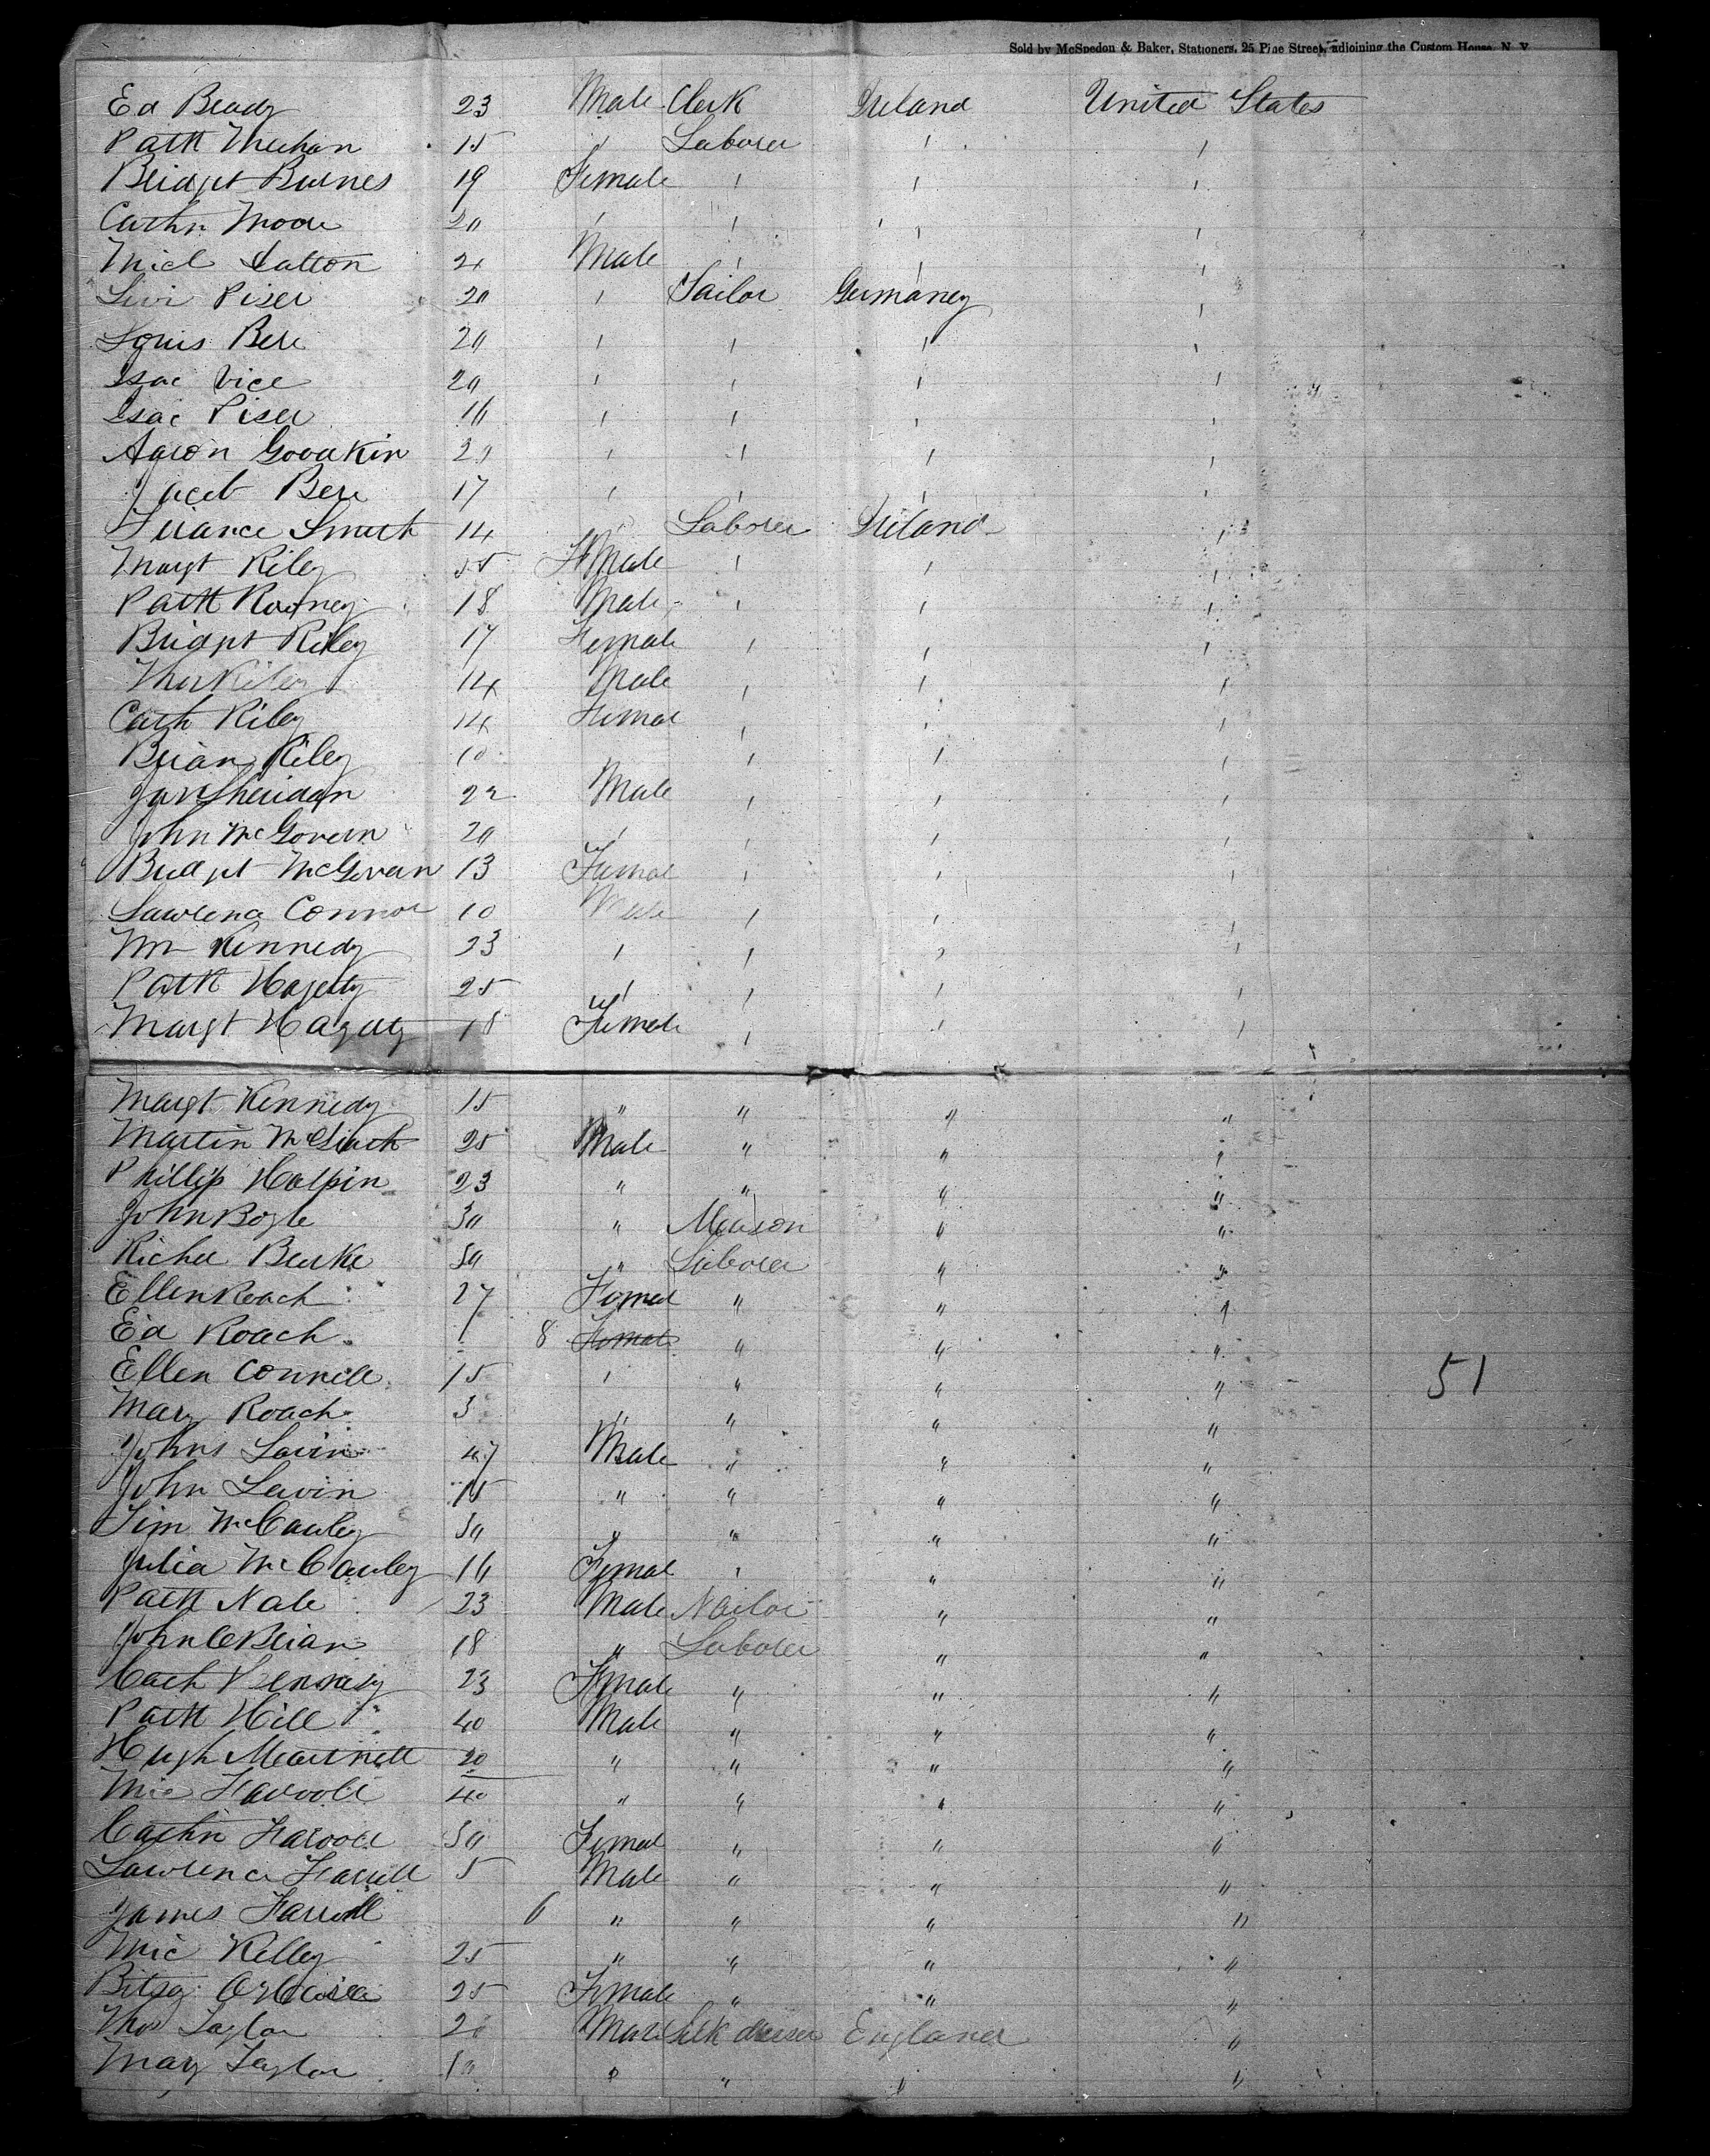 Sold by McSpedon & Baker, Stationers, 25 Pine Street, adjoining the Custom House, N. Y.
Ed Brady 23 Male Clerk Ireland United States
Patk Meehan 15 " Laborer " "
Bridget Burnes 19 Female " " "
Cathn Moore 20 " " " "
Micl Dalton 21 Male " " "
Levi Piser 20 " Tailor Germaney "
Louis Bere 20 " " " "
Isac Vice 20 " " " "
Isac Piser 16 " " " "
Aaron Goodkin 20 " " " "
Jacob Bere 17 " " " "
Terance Smith 14 " Laborer Ireland "
Margt Riley 55 Female " " "
Patk Rooney 18 Male " " "
Bridget Riley 17 Female " " "
Thos Riley 14 Male " " "
Cath Riley 14 Femal " " "
Brian Riley 10 " " "
Jas Sheridan 22 Male " " "
John McGovern 20 " " " "
Bridget McGovern 13 Femal " " "
Lawrence Connor 10 Male " " "
Wm Kennedy 23 " " " "
Patk Hagerty 25 " " " "
Margt Hagerty 18 Female " " "
Margt Kennedy 15 " " " "
Martin 25 Male " " "
Phillip Halpin 23 " " " "
John Bogle 30 " Meason " "
Richd Burke 50 " Laborer " "
Ellen Roach 27 Femal " " "
Ed Roach 8 Femal " " "
Ellen Connell 15 " " " "
Mary Roach 3 " " " "
Johns Lavin 47 Male " " "
John Lavin 15 " " " "
Tim McCauley 50 " " " "
Julia McCauley 16 Femal " " "
Patk Nale 23 Male Nailor " "
John OBrian 18 " Laborer " "
Cath 23 Female " " "
Patk Hill 40 Male " " "
Hugh 20 " " " "
Mic 40 " " " "
Cathn 30 Femal " " "
Lawrence Farrell 5 Male " " "
James Farrell 6 " " " "
Mic Kelley 25 " " " "
Bitsy 25 Female " " "
Thos Taylor 20 Male Silk dresser England "
Mary Taylor " " " "
51